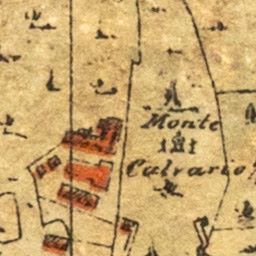 Monte
Calvario